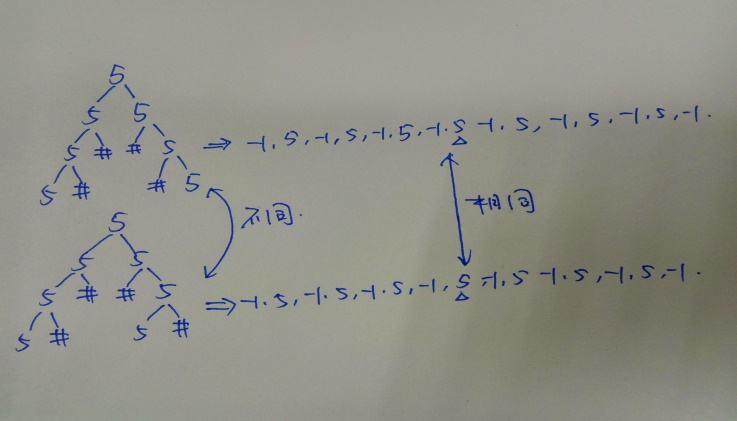 5
5 5
5 # # 5 ⇒ -1, 5, -1, 5, -1, 5, -1, 5 -1, 5, -1, 5, -1, 5, -1.
5 # # 5
不同. 相同
5
5 5
5 # # 5 ⇒ -1, 5, -1, 5, -1, 5, -1, 5, -1, 5 -1, 5, -1, 5, -1.
5 # 5 #